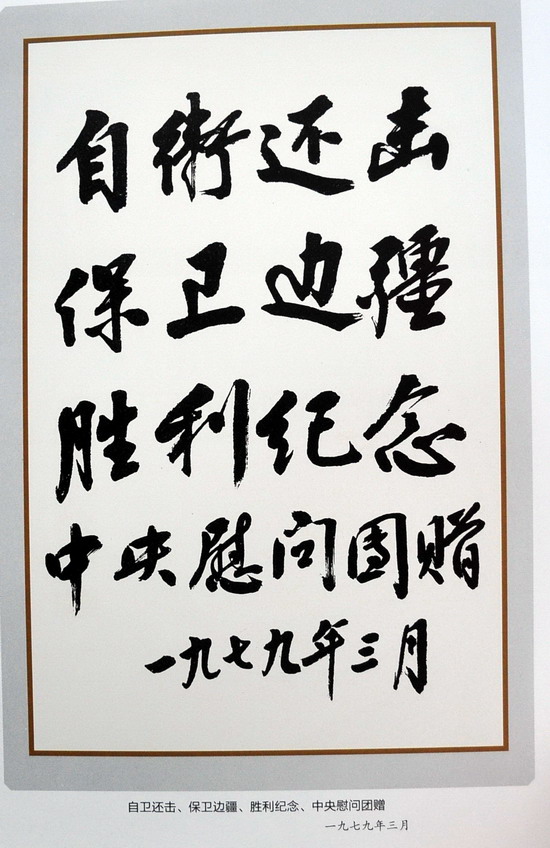 自衛还击
保卫边疆
胜利纪念
中央慰问团赠
一九七九年三月
自卫还击、保卫边疆、胜利纪念、中央慰问团赠
一九七九年三月